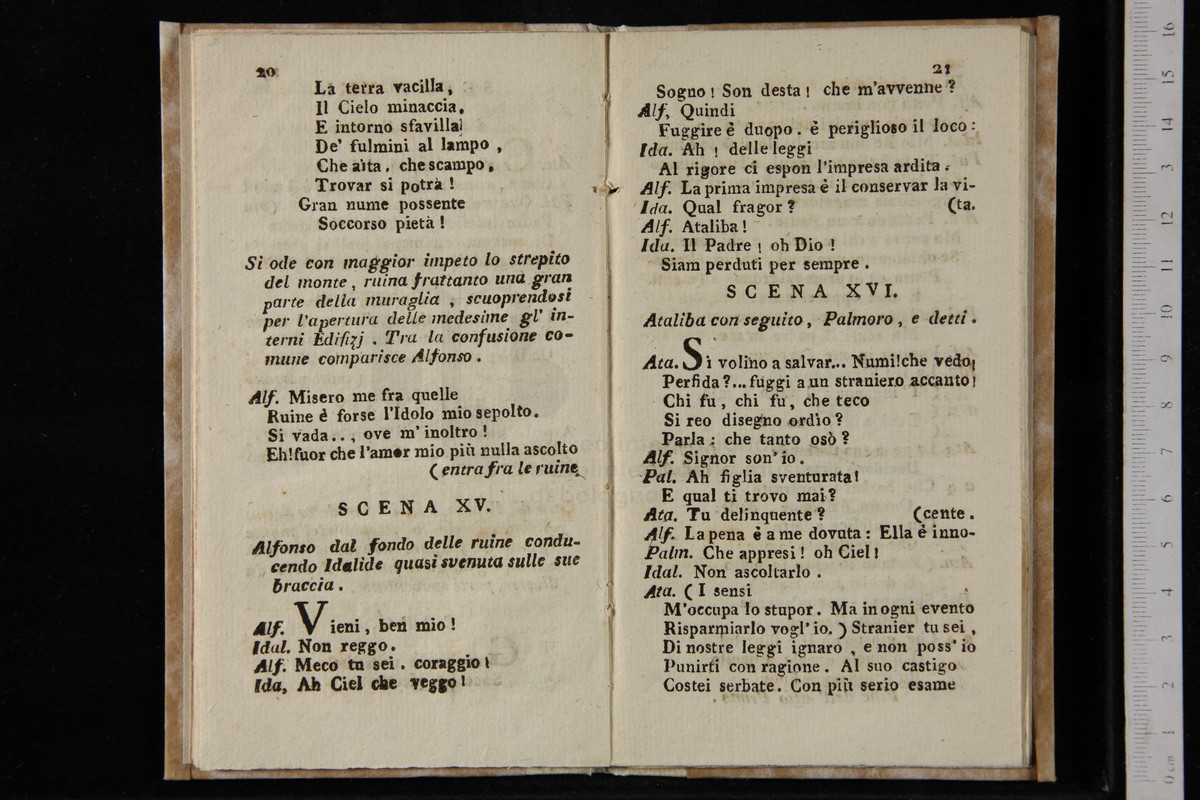 20
La terra vacilla,
Il Cielo minaccia.
E intorno sfavilla!
De' fulmini al lampo ,
Che aita. che scampo.
Trovar si potrà !
Gran nume possente
Soccorso pietà !
Si ode con maggior impeto lo strepito
del monte , ruina frattanto una gran
parte della muraglia , scuoprendosi
per l'apertura delle medesime gl' in-
terni Edifizj . Tra la confusione co-
mune comparisce Alfonso .
Alf. Misero me fra quelle
Ruine è forse l'Idolo mio sepolto.
Si vada.. , ove m' inoltro !
Eh!fuor che l'amor mio più nulla ascolto
( entra fra le ruine
SCENA XV.
Alfonso dal fondo delle ruine condu-
cendo Idalide quasi svenuta sulle sue
braccia .
Alf. Vieni , ben mio !
Idal. Non reggo.
Alf. Meco tu sei . coraggio !
Ida, Ah Ciel che veggo !
21
Sogno ! Son desta ! che m'avvenne ?
Alf, Quindi
Fuggire è duopo . è periglioso il loco :
Ida. Ah ! delle leggi
Al rigore ci espon l'impresa ardita .
Alf. La prima impresa è il conservar la vi-
Ida. Qual fragor ? (ta.
Alf. Ataliba !
Ida. Il Padre ! oh Dio !
Siam perduti per sempre .
SCENA XVI.
Ataliba con seguito , Palmoro , e detti .
Ata. Si volino a salvar... Numi!che vedo!
Perfida ?... fuggi a un straniero accanto!
Chi fu , chi fu , che teco
Si reo disegno ordìo ?
Parla : che tanto osò ?
Alf. Signor son' io .
Pal. Ah figlia sventurata!
E qual ti trovo mai ?
Ata. Tu delinquente ? (cente .
Alf. La pena è a me dovuta : Ella è inno-
Palm. Che appresi ! oh Ciel !
Idal. Non ascoltarlo .
Ata. ( I sensi
M'occupa lo stupor . Ma in ogni evento
Risparmiarlo vogl' io. ) Stranier tu sei ,
Di nostre leggi ignaro , e non poss' io
Punirti con ragione . Al suo castigo
Costei serbate. Con più serio esame
0 cm 1 2 3 4 5 6 7 8 9 10 11 12 13 14 15 16